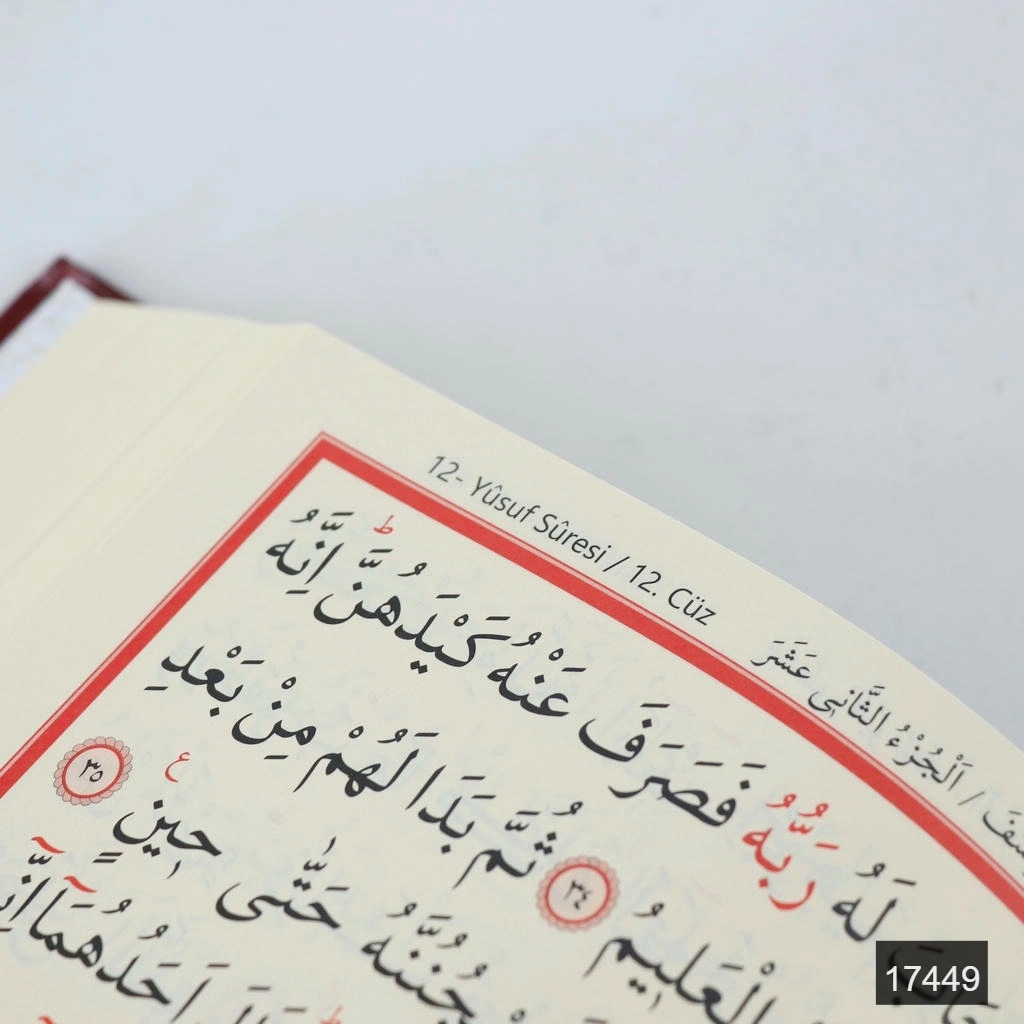 12- Yûsuf Sûresi / 12. Cüz
اَلْجُزْءُ الثَّانٖى عَشَرَ
لَهُ رَبُّهُ فَصَرَفَ عَنْهُ كَيْدَهُنَّ ط اِنَّهُ
الْعَلٖيمُ ٣٤ ثُمَّ بَدَا لَهُمْ مِنْ بَعْدِ
حَتّٰى حٖينٍ ع ٣٥
17449